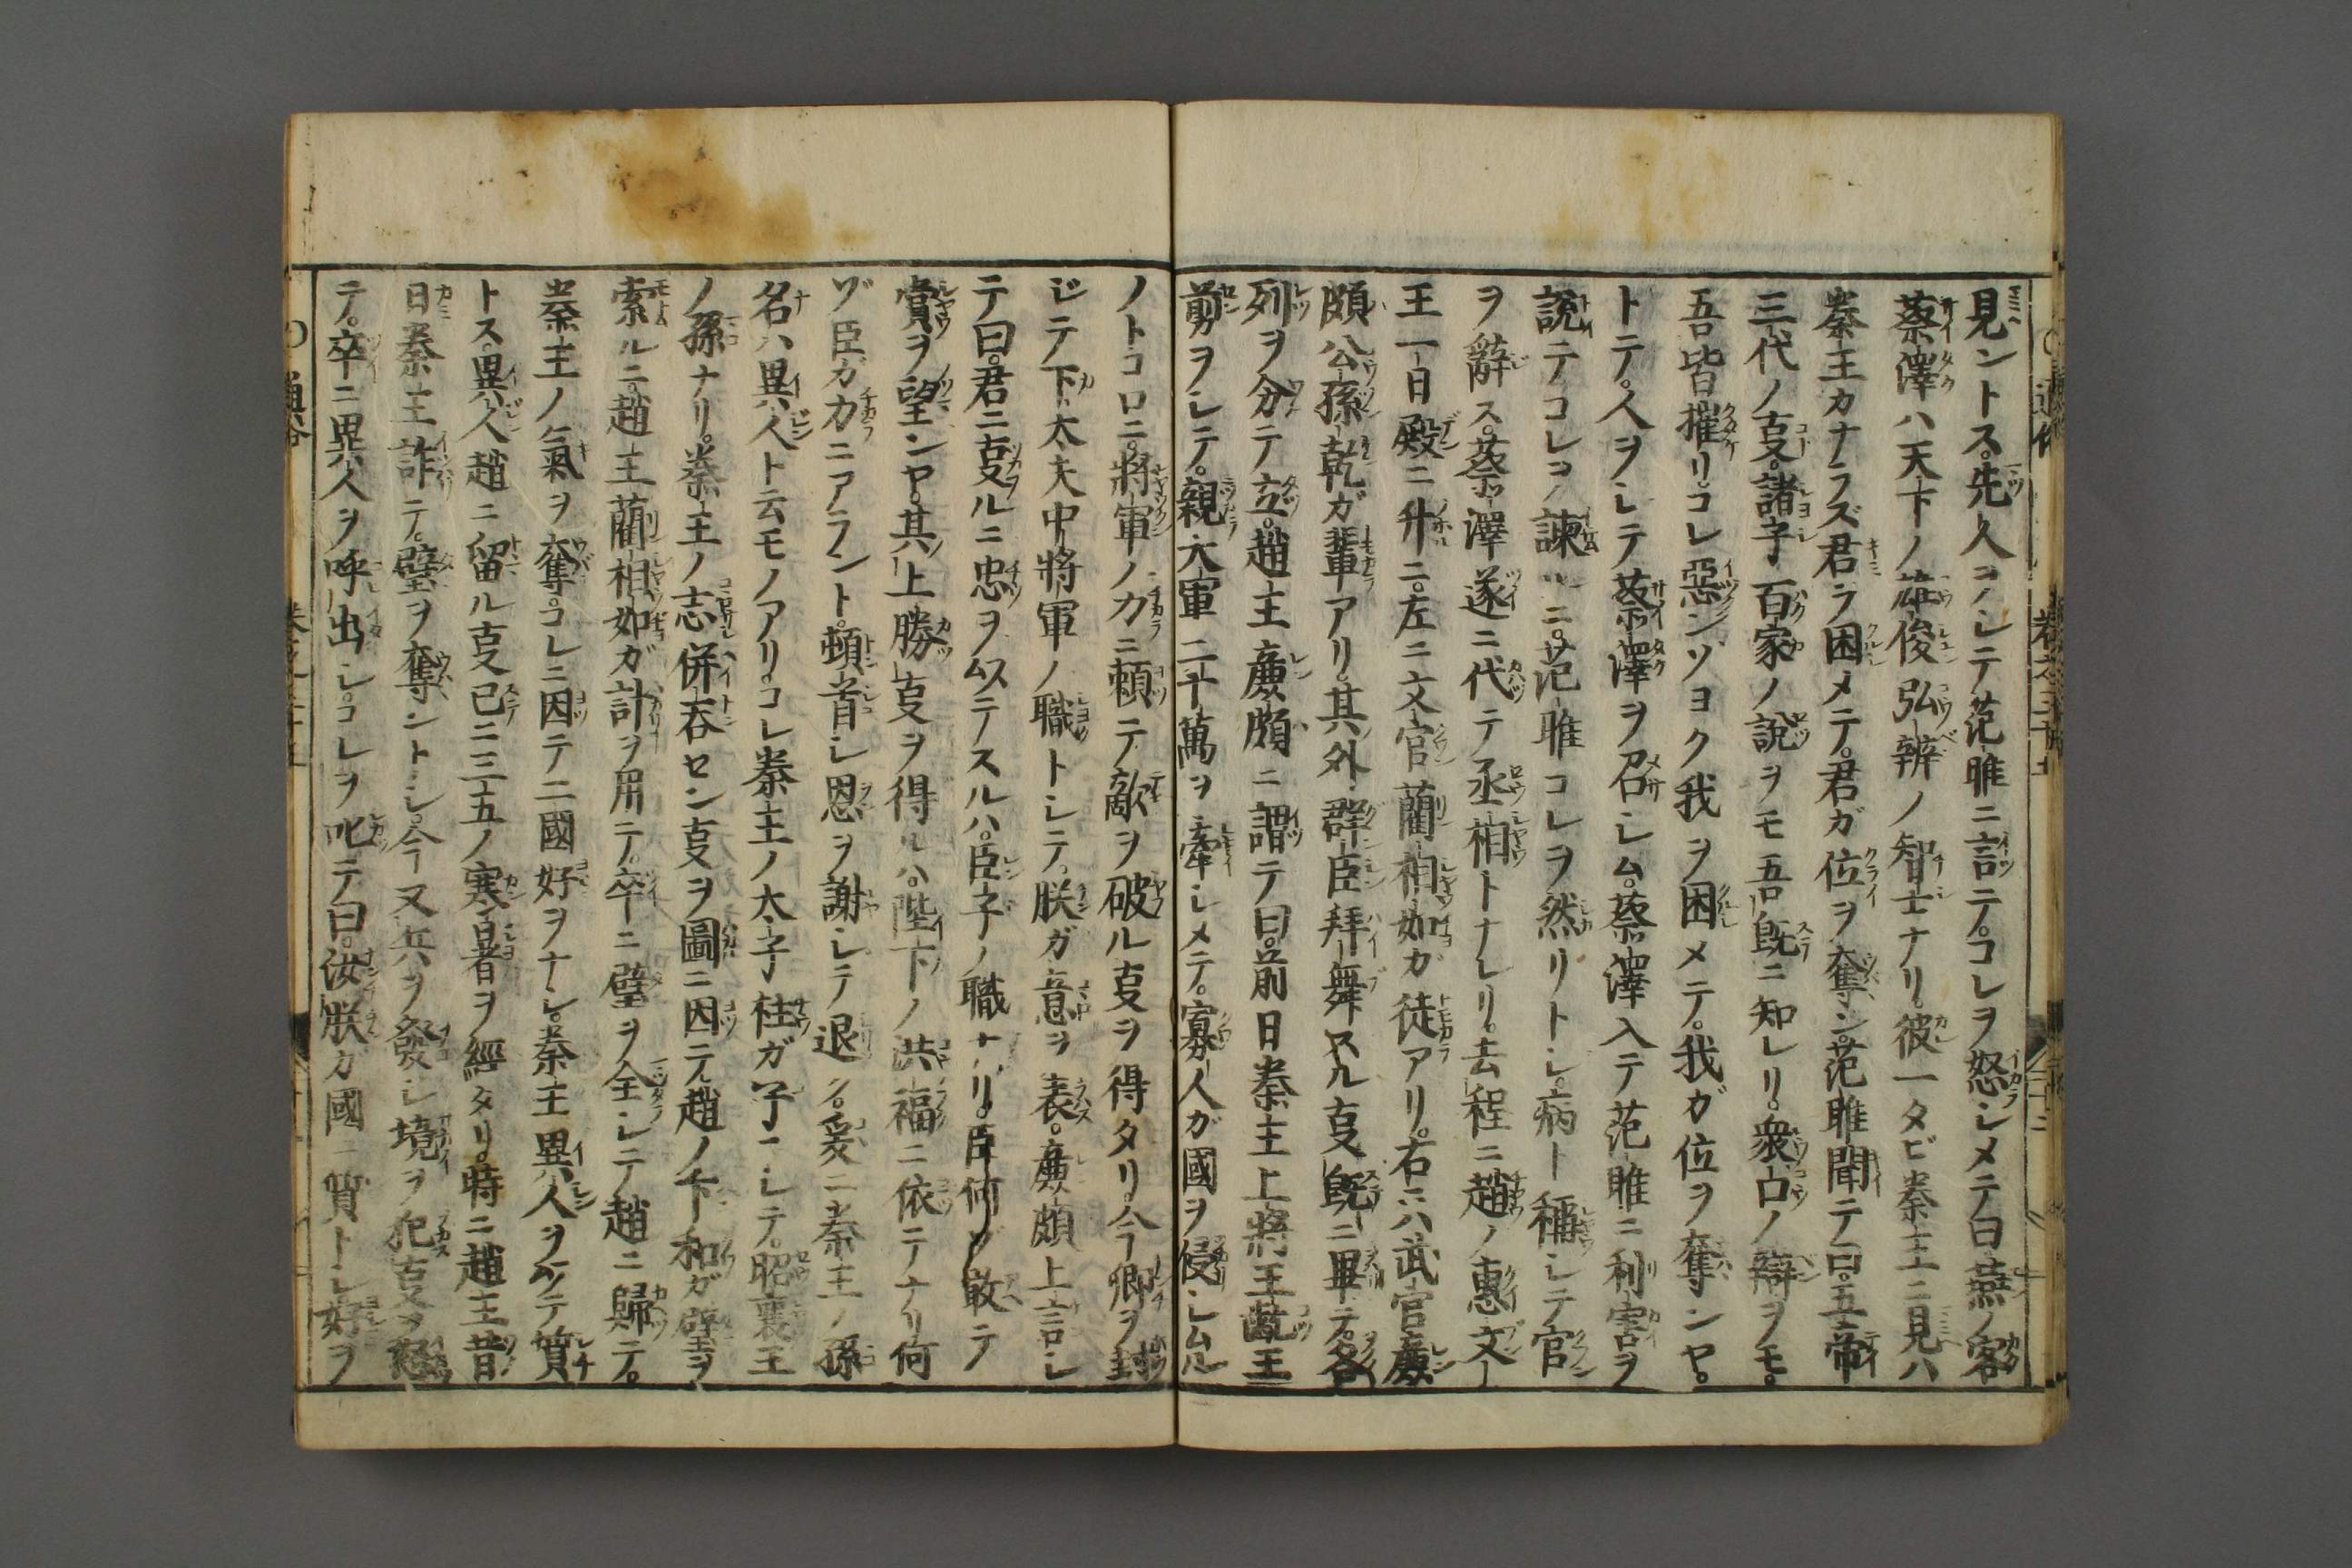 見ントス。先人ヲシテ范雎ニ言テ。コレヲ怒シメテ曰燕ノ客
蔡澤ハ天下ノ雄俊弘辨ノ智士ナリ。彼一タビ秦王ニ見ハ
秦王カナラズ君ヲ困メテ。君ガ位ヲ奪ン。范雎聞テ曰。五帝
三代ノ叓。諸子百家ノ説ヲモ吾既ニ知レリ。衆口ノ辯ヲモ。
吾皆摧リ。コレ惡ンゾヨク我ヲ困メテ。我ガ位ヲ奪ンヤ。
トテ。人ヲシテ蔡澤ヲ召シム。蔡澤入テ范雎ニ利害ヲ
説テコレヲ諫ルニ。范雎コレヲ然リトシ。病ト稱シテ官
ヲ辭ス。蔡澤遂ニ代テ丞相トナレリ。去程ニ趙ノ惠文
王一日殿ニ升ニ。左ニ文官藺相如ガ徒アリ。右ニハ武官廉
頗公孫乾ガ輩アリ。其外群臣拜舞スル叓既ニ畢テ。各
列ヲ分テ立。趙王廉頗ニ謂テ曰。前日秦王上將王齕王
剪ヲシテ。親大軍二十萬ヲ牽シメテ。寡人ガ國ヲ侵シムル
ノトコロニ。將軍ノ力ニ頼テ敵ヲ破ル叓ヲ得タリ。今卿ヲ封
ジテ下大夫中將軍ノ職トシテ。朕ガ意ヲ表。廉頗上言シ
テ曰。君ニ叓ルニ忠ヲ以テスルハ。臣子ノ職ナリ。臣何ゾ敢テ
賞ヲ望ンヤ。其上勝叓ヲ得ルハ。陛下ノ洪福ニ依テナリ何
ゾ臣ガ力ニアラント。頓首シ恩ヲ謝シテ退ク。爰ニ秦王ノ孫
名ハ異人ト云モノアリ。コレ秦王ノ太子柱ガ子ニシテ。昭襄王
ノ孫ナリ。秦王ノ志併吞セン叓ヲ圖ニ因テ趙ノ卞和ガ璧ヲ
索ルニ。趙王藺相如ガ計ヲ用テ。卒ニ璧ヲ全シテ趙ニ歸テ。
秦王ノ氣ヲ奪。コレニ因テ二國好ヲナシ。秦王異人ヲ以テ質
トス。異人趙ニ留ル叓已ニ三五ノ寒暑ヲ經タリ。時ニ趙王昔
日秦王詐テ。璧ヲ奪ントシ。今又兵ヲ發シ境ヲ犯叓ヲ怒
テ。卒ニ異人ヲ呼出シ。コレヲ叱テ曰。汝朕ガ國ニ質トシ好ヲ